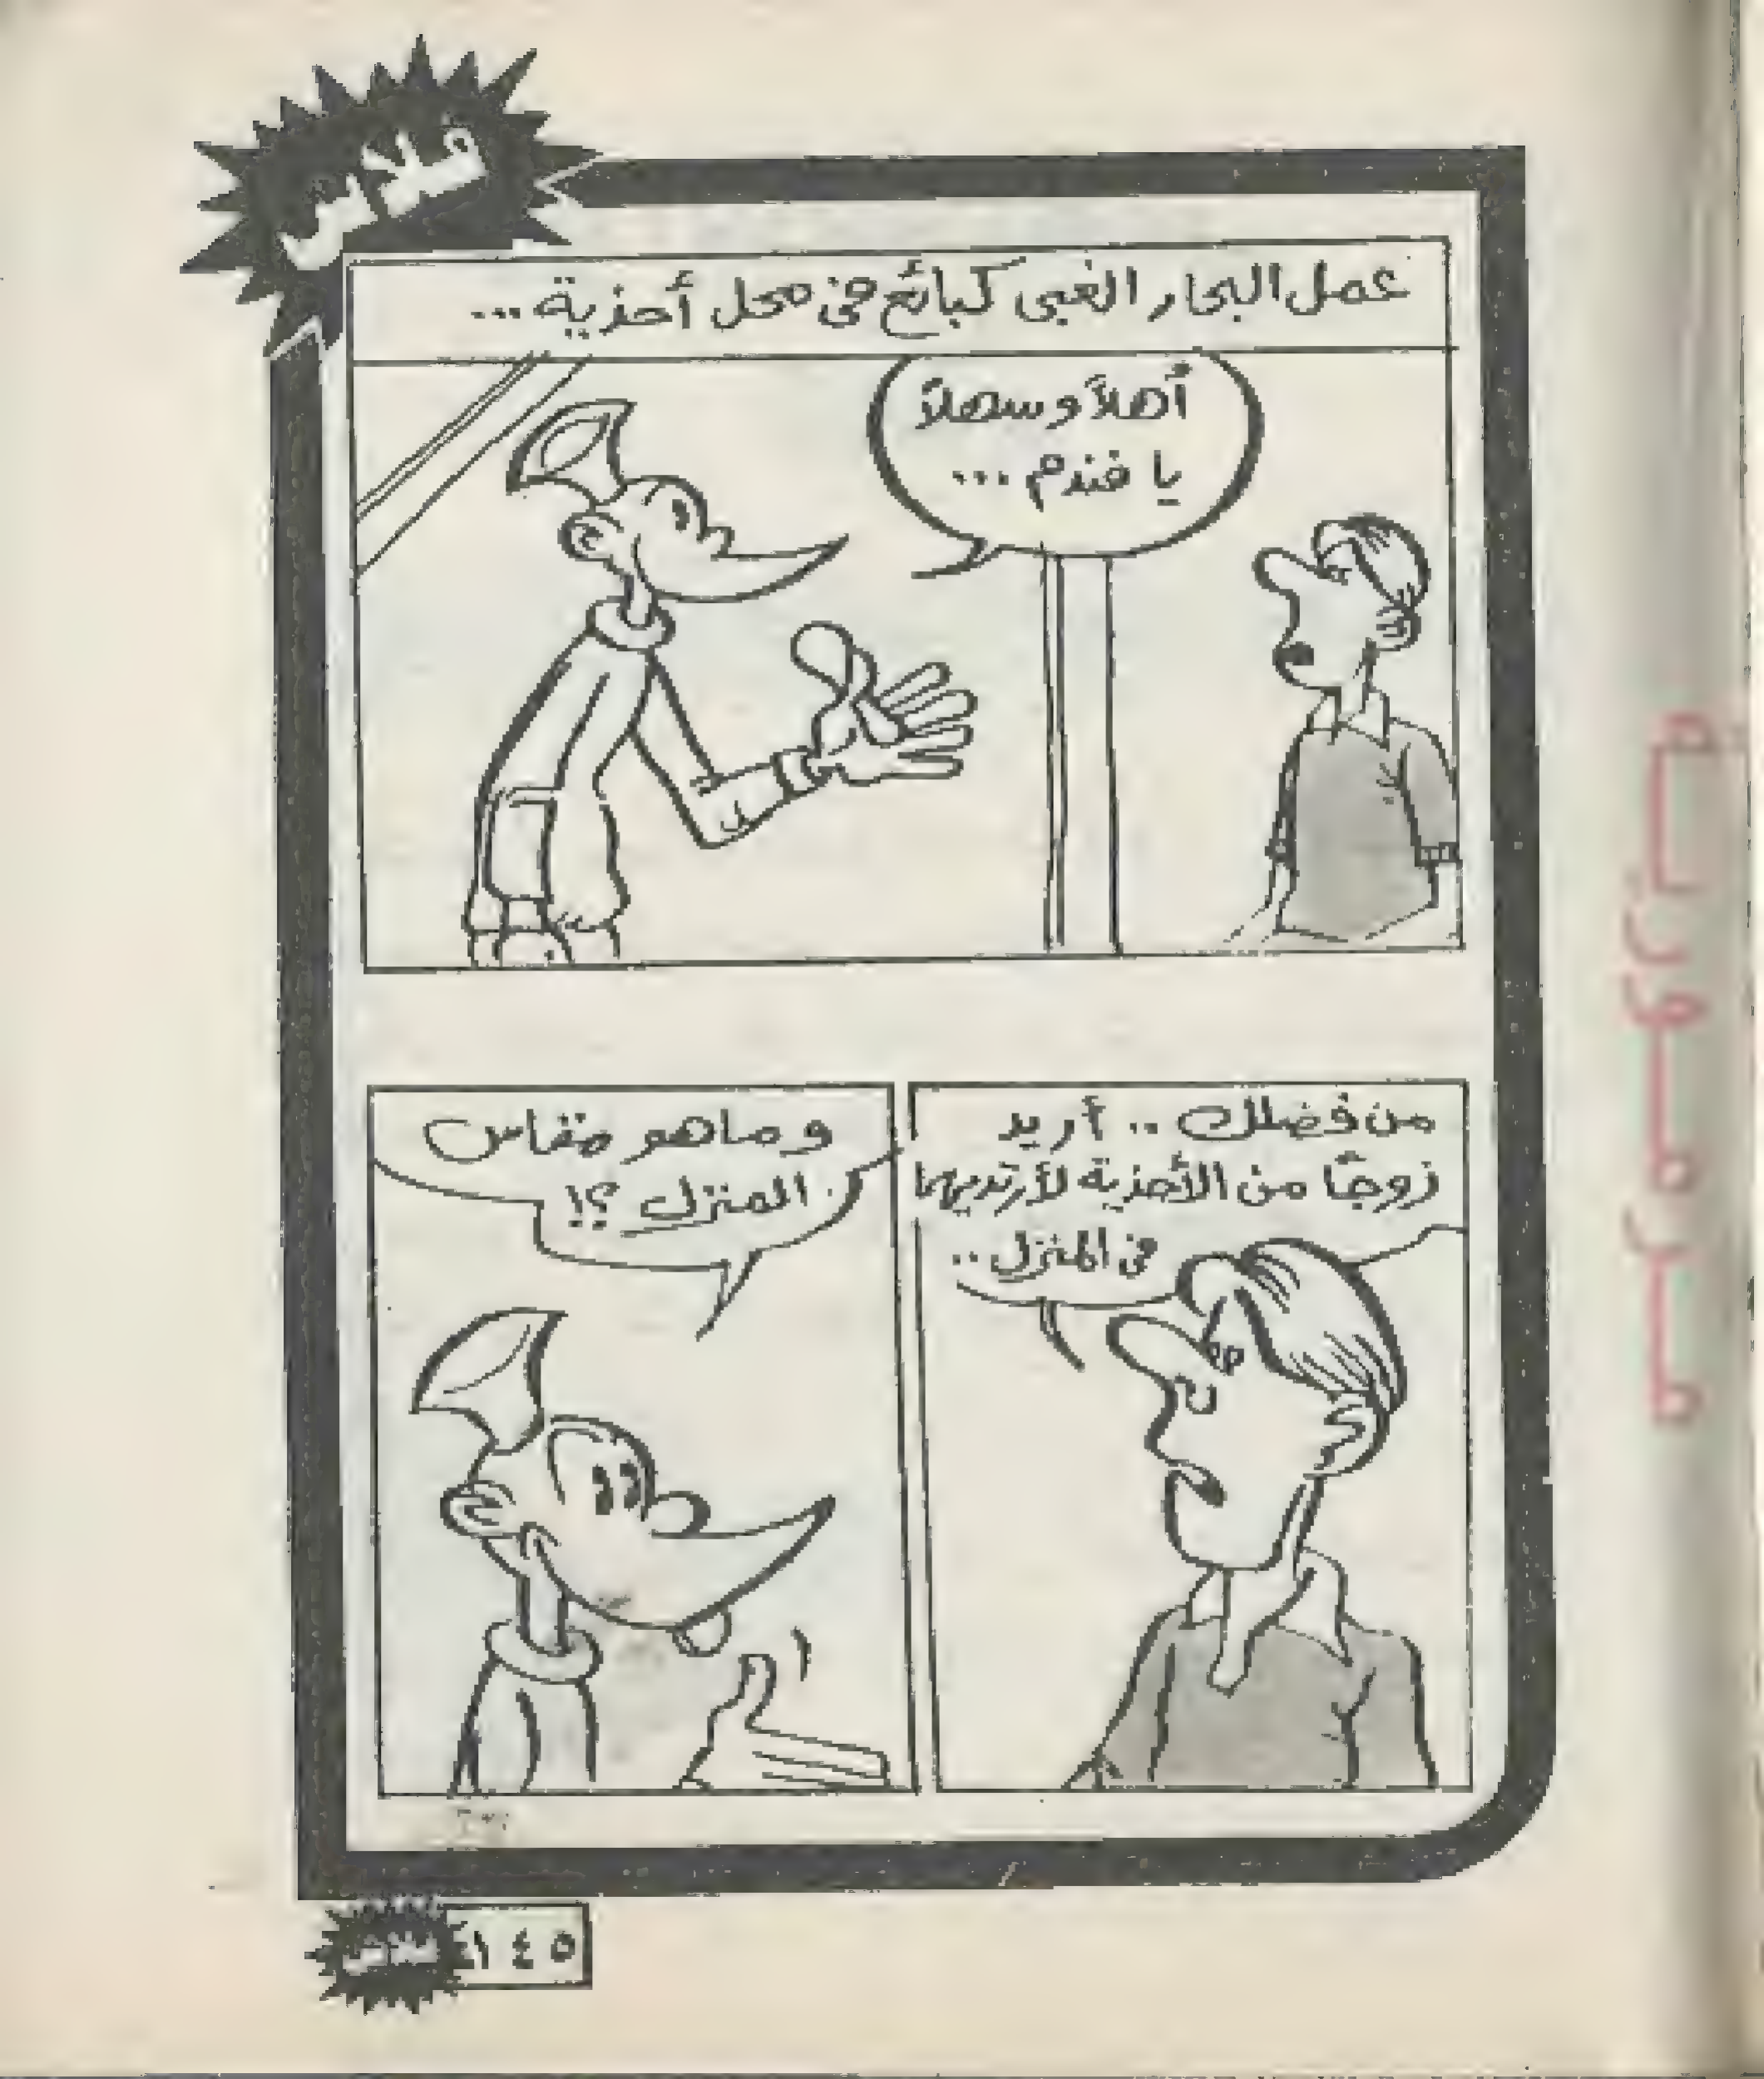 فلاش
عمل البحار الغبى كبائع فى محل أحذية...
أهلاً وسهلاً
يا فندم ...
من فضلك .. أريد
زوجًا من الأحذية لأرتديهما
فى المنزل ..
وما هو مقاس
المنزل ؟!
فلاش ١٤٥